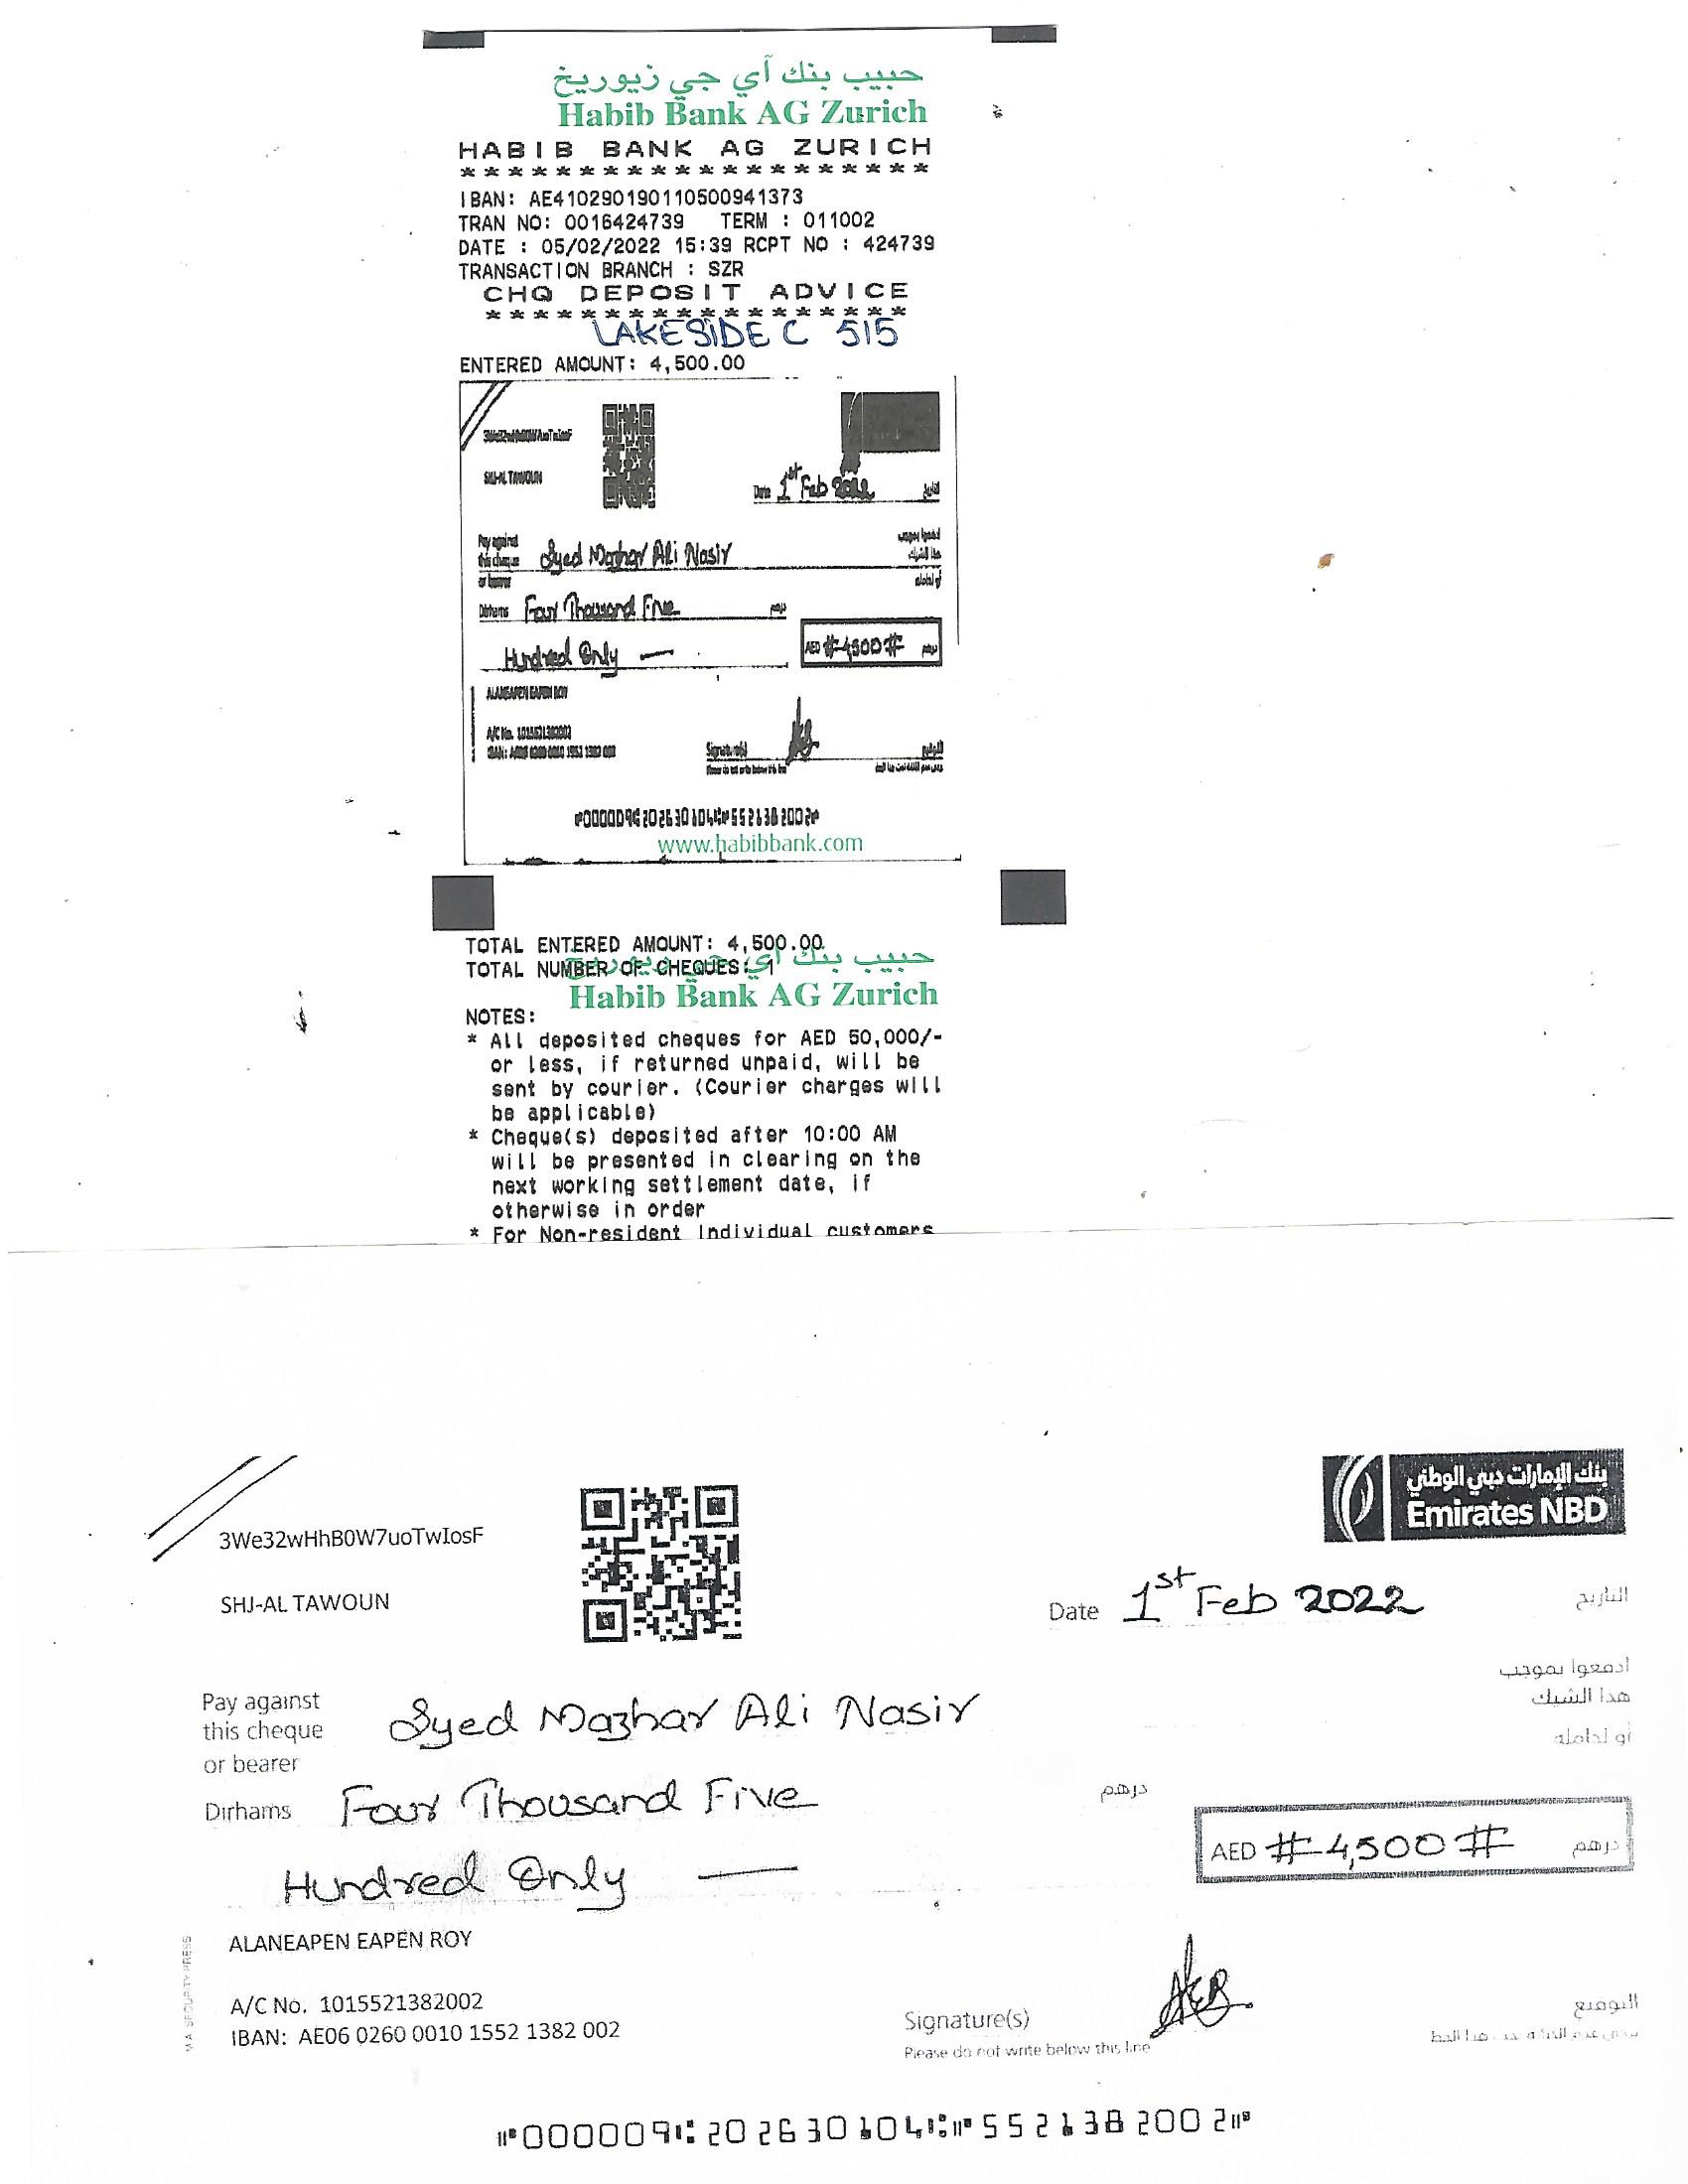 حبيب بنك آي جي زيوريخ
Habib Bank AG Zurich
HABIB BANK AG ZURICH
********************
IBAN: AE410290190110500941373
TRAN NO: 0016424739 TERM : 011002
DATE : 05/02/2022 15:39 RCPT NO : 424739
TRANSACTION BRANCH : SZR
CHQ DEPOSIT ADVICE
******************
LAKESIDE C 515
ENTERED AMOUNT: 4,500.00
SHJ-AL TAWOUN
Date 1st Feb 2022 التاريخ
Pay against
this cheque Syed Mazhar Ali Nasir
or bearer
Dirhams Four Thousand Five درهم
Hundred Only — AED #4,500# درهم
ALANEAPEN EAPEN ROY
A/C No. 1015521382002
Signature(s) التوقيع
Please do not write below this line
www.habibbank.com
TOTAL ENTERED AMOUNT: 4,500.00
حبيب بنك آي جي زيوريخ
TOTAL NUMBER OF CHEQUES: 1
Habib Bank AG Zurich
NOTES:
* All deposited cheques for AED 50,000/-
or less, if returned unpaid, will be
sent by courier. (Courier charges will
be applicable)
* Cheque(s) deposited after 10:00 AM
will be presented in clearing on the
next working settlement date, if
otherwise in order
* For Non-resident Individual customers
بنك الإمارات دبي الوطني
Emirates NBD
3We32wHhB0W7uoTwIosF
SHJ-AL TAWOUN
Date 1st Feb 2022 التاريخ
ادفعوا بموجب
Pay against هذا الشيك
this cheque Syed Mazhar Ali Nasir
or bearer أو لحامله
Dirhams Four Thousand Five درهم
AED #4,500# درهم
Hundred Only —
ALANEAPEN EAPEN ROY
A/C No. 1015521382002
IBAN: AE06 0260 0010 1552 1382 002
Signature(s) التوقيع
Please do not write below this line
M.A. SECURITY PRESS
⑈000009⑆202630104⑆⑈552138200 2⑈